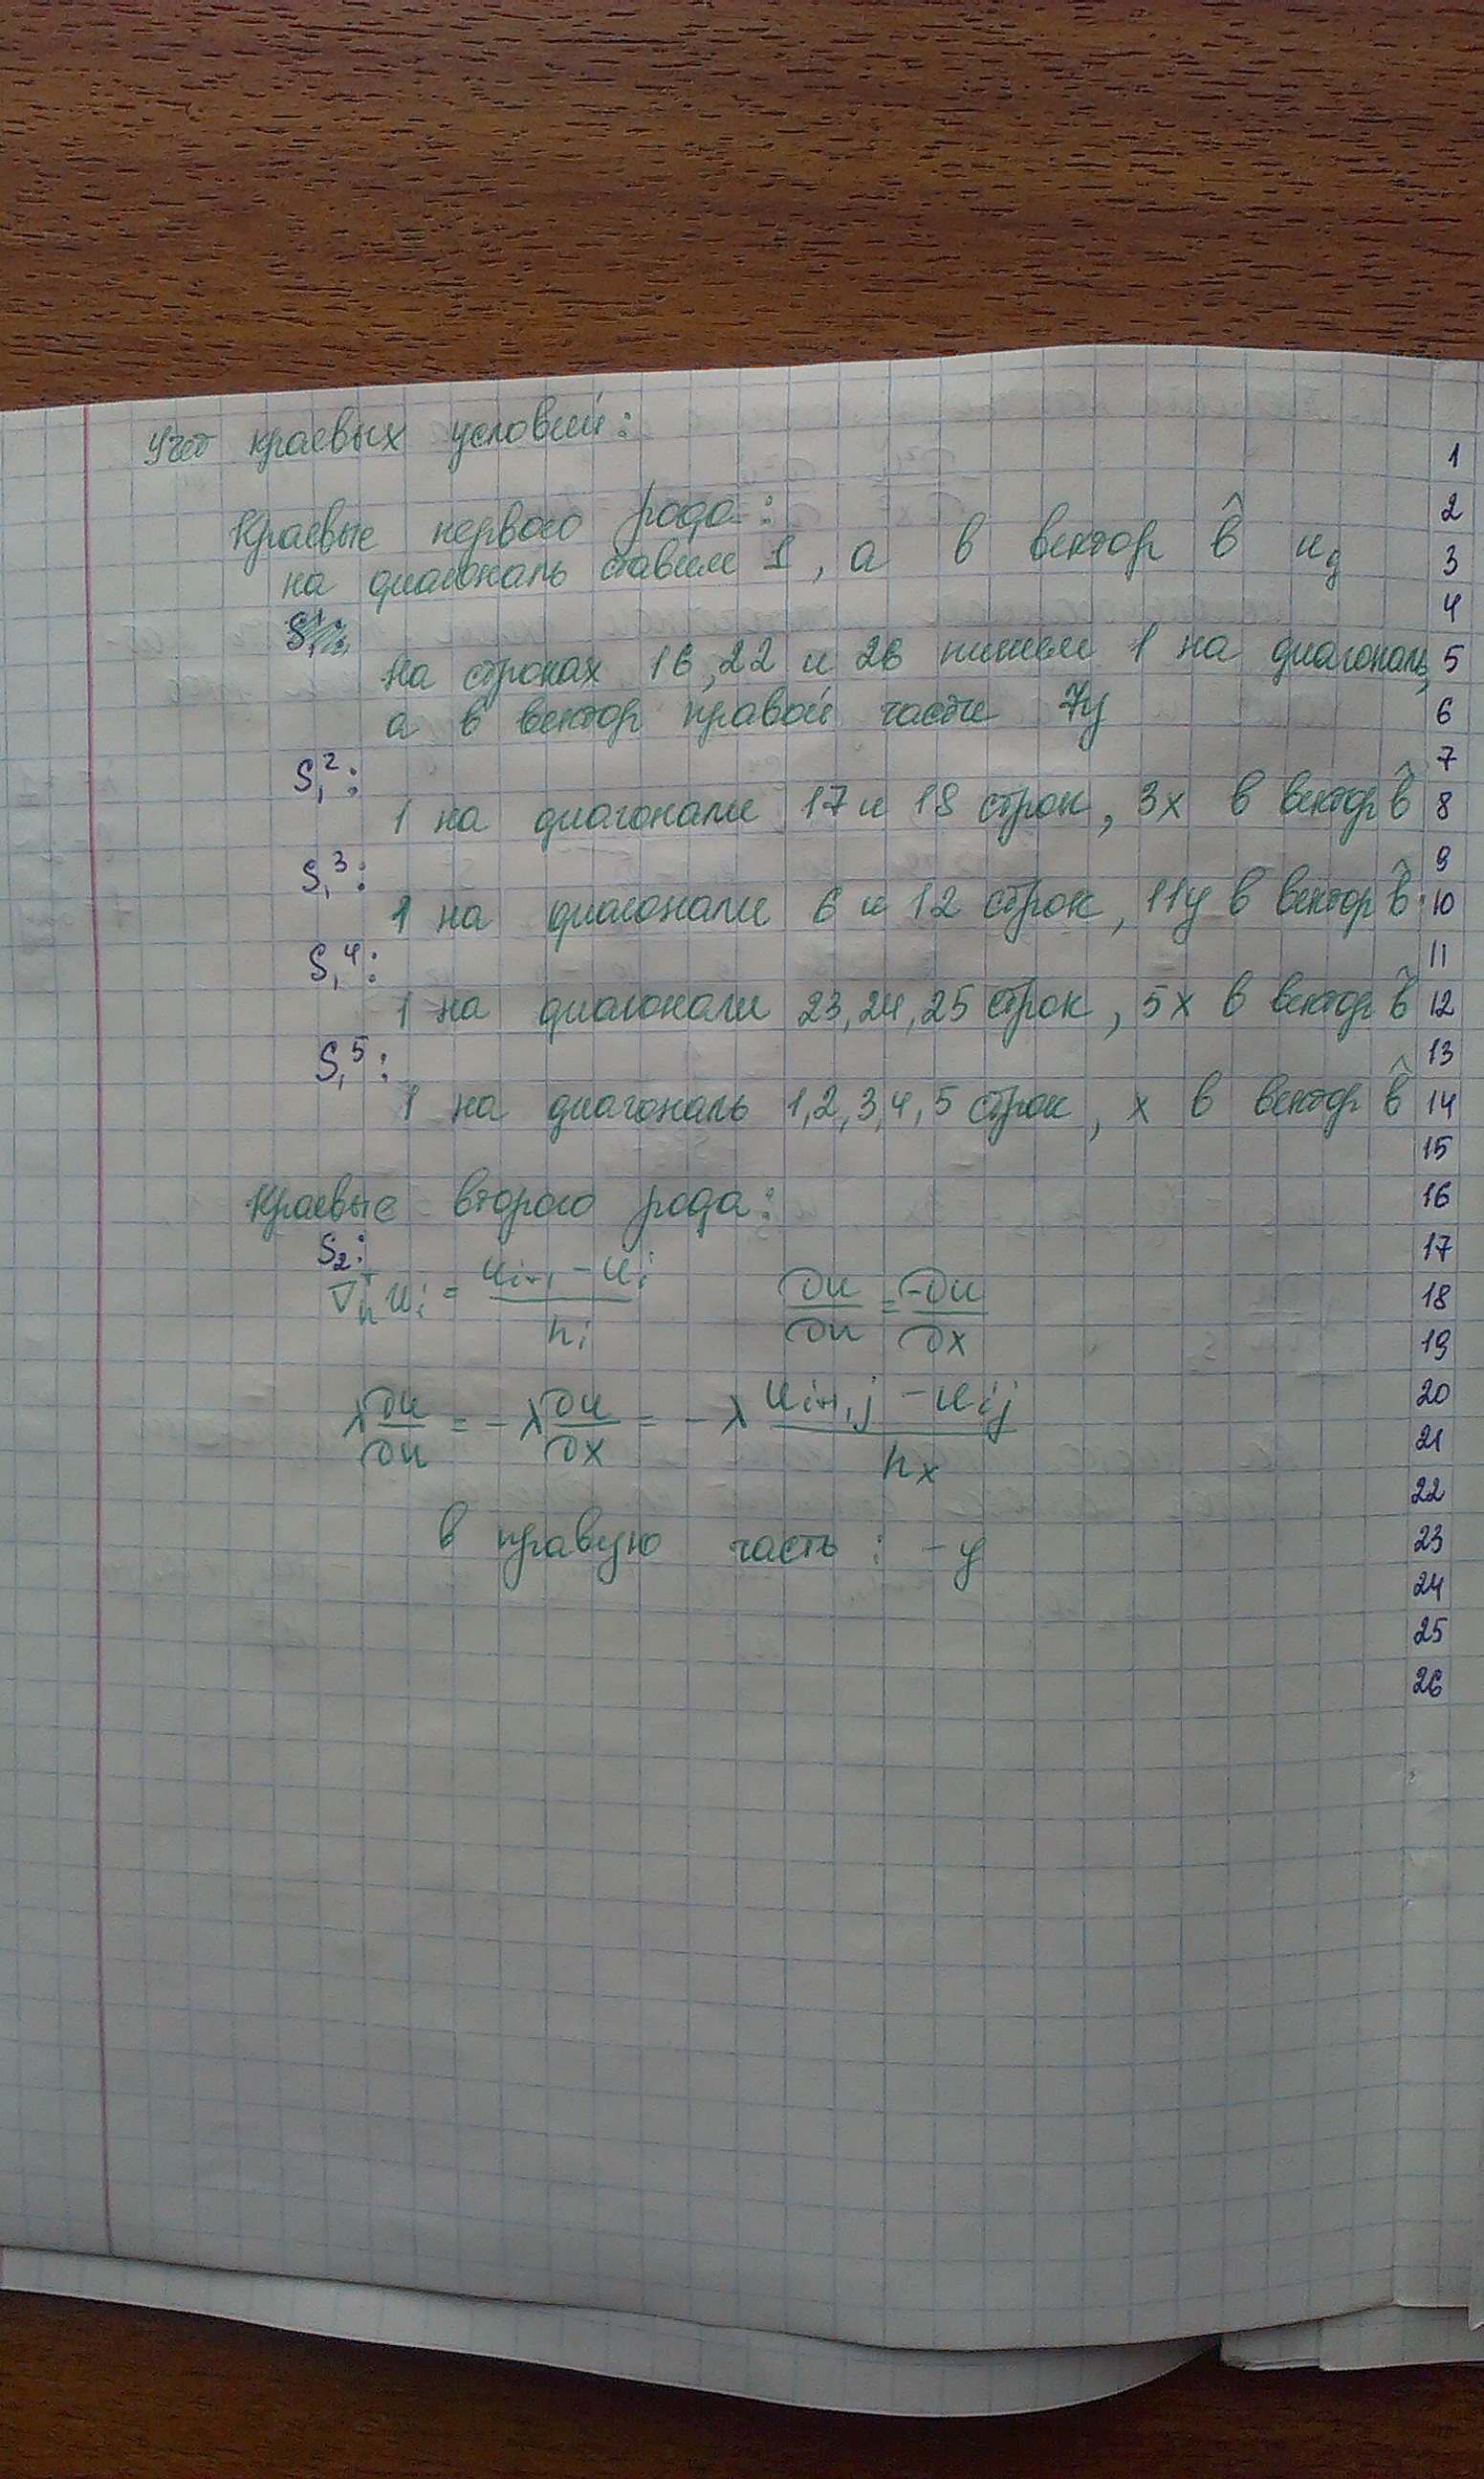 Учет краевых условий:
Краевые первого рода:
на диагональ ставим 1, а в вектор b̂ u_g
S₁¹:
На строках 16, 22 и 26 пишем 1 на диагональ,
а в вектор правой части 7y
S₁²:
1 на диагонали 17 и 18 строк, 3x в вектор b̂
S₁³:
1 на диагонали 6 и 12 строк, 11y в вектор b̂
S₁⁴:
1 на диагонали 23, 24, 25 строк, 5x в вектор b̂
S₁⁵:
1 на диагональ 1, 2, 3, 4, 5 строк, x в вектор b̂
Краевые второго рода:
S₂:
∇ₕ⁺uᵢ = (uᵢ₊₁ - uᵢ) / hᵢ    ∂u/∂n = -∂u/∂x
λ ∂u/∂n = -λ ∂u/∂x = -λ (uᵢ₊₁,ⱼ - uᵢⱼ) / hₓ
в правую часть: -y
1
2
3
4
5
6
7
8
9
10
11
12
13
14
15
16
17
18
19
20
21
22
23
24
25
26